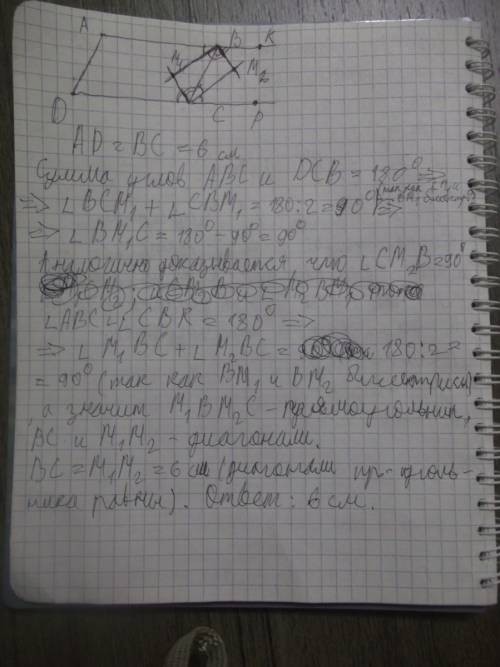 A B K
M₁ M₂
D C P
AD = BC = 6 см
Сумма углов ABC и DCB = 180° ⇒
⇒ ∠BCM₁ + ∠CBM₁ = 180:2 = 90° ⇒
(так как CM₁ и BM₁ биссектрисы)
⇒ ∠BM₁C = 180° - 90° = 90°
Аналогично доказывается, что ∠CM₂B = 90°
∠ABC + ∠CBK = 180° ⇒
⇒ ∠M₁BC + ∠M₂BC = 180:2 =
= 90° (так как BM₁ и BM₂ биссектрисы)
, а значит M₁BM₂C - прямоугольник,
BC и M₁M₂ - диагонали.
BC = M₁M₂ = 6 см (диагонали пр-уголь-
ника равны). Ответ: 6 см.